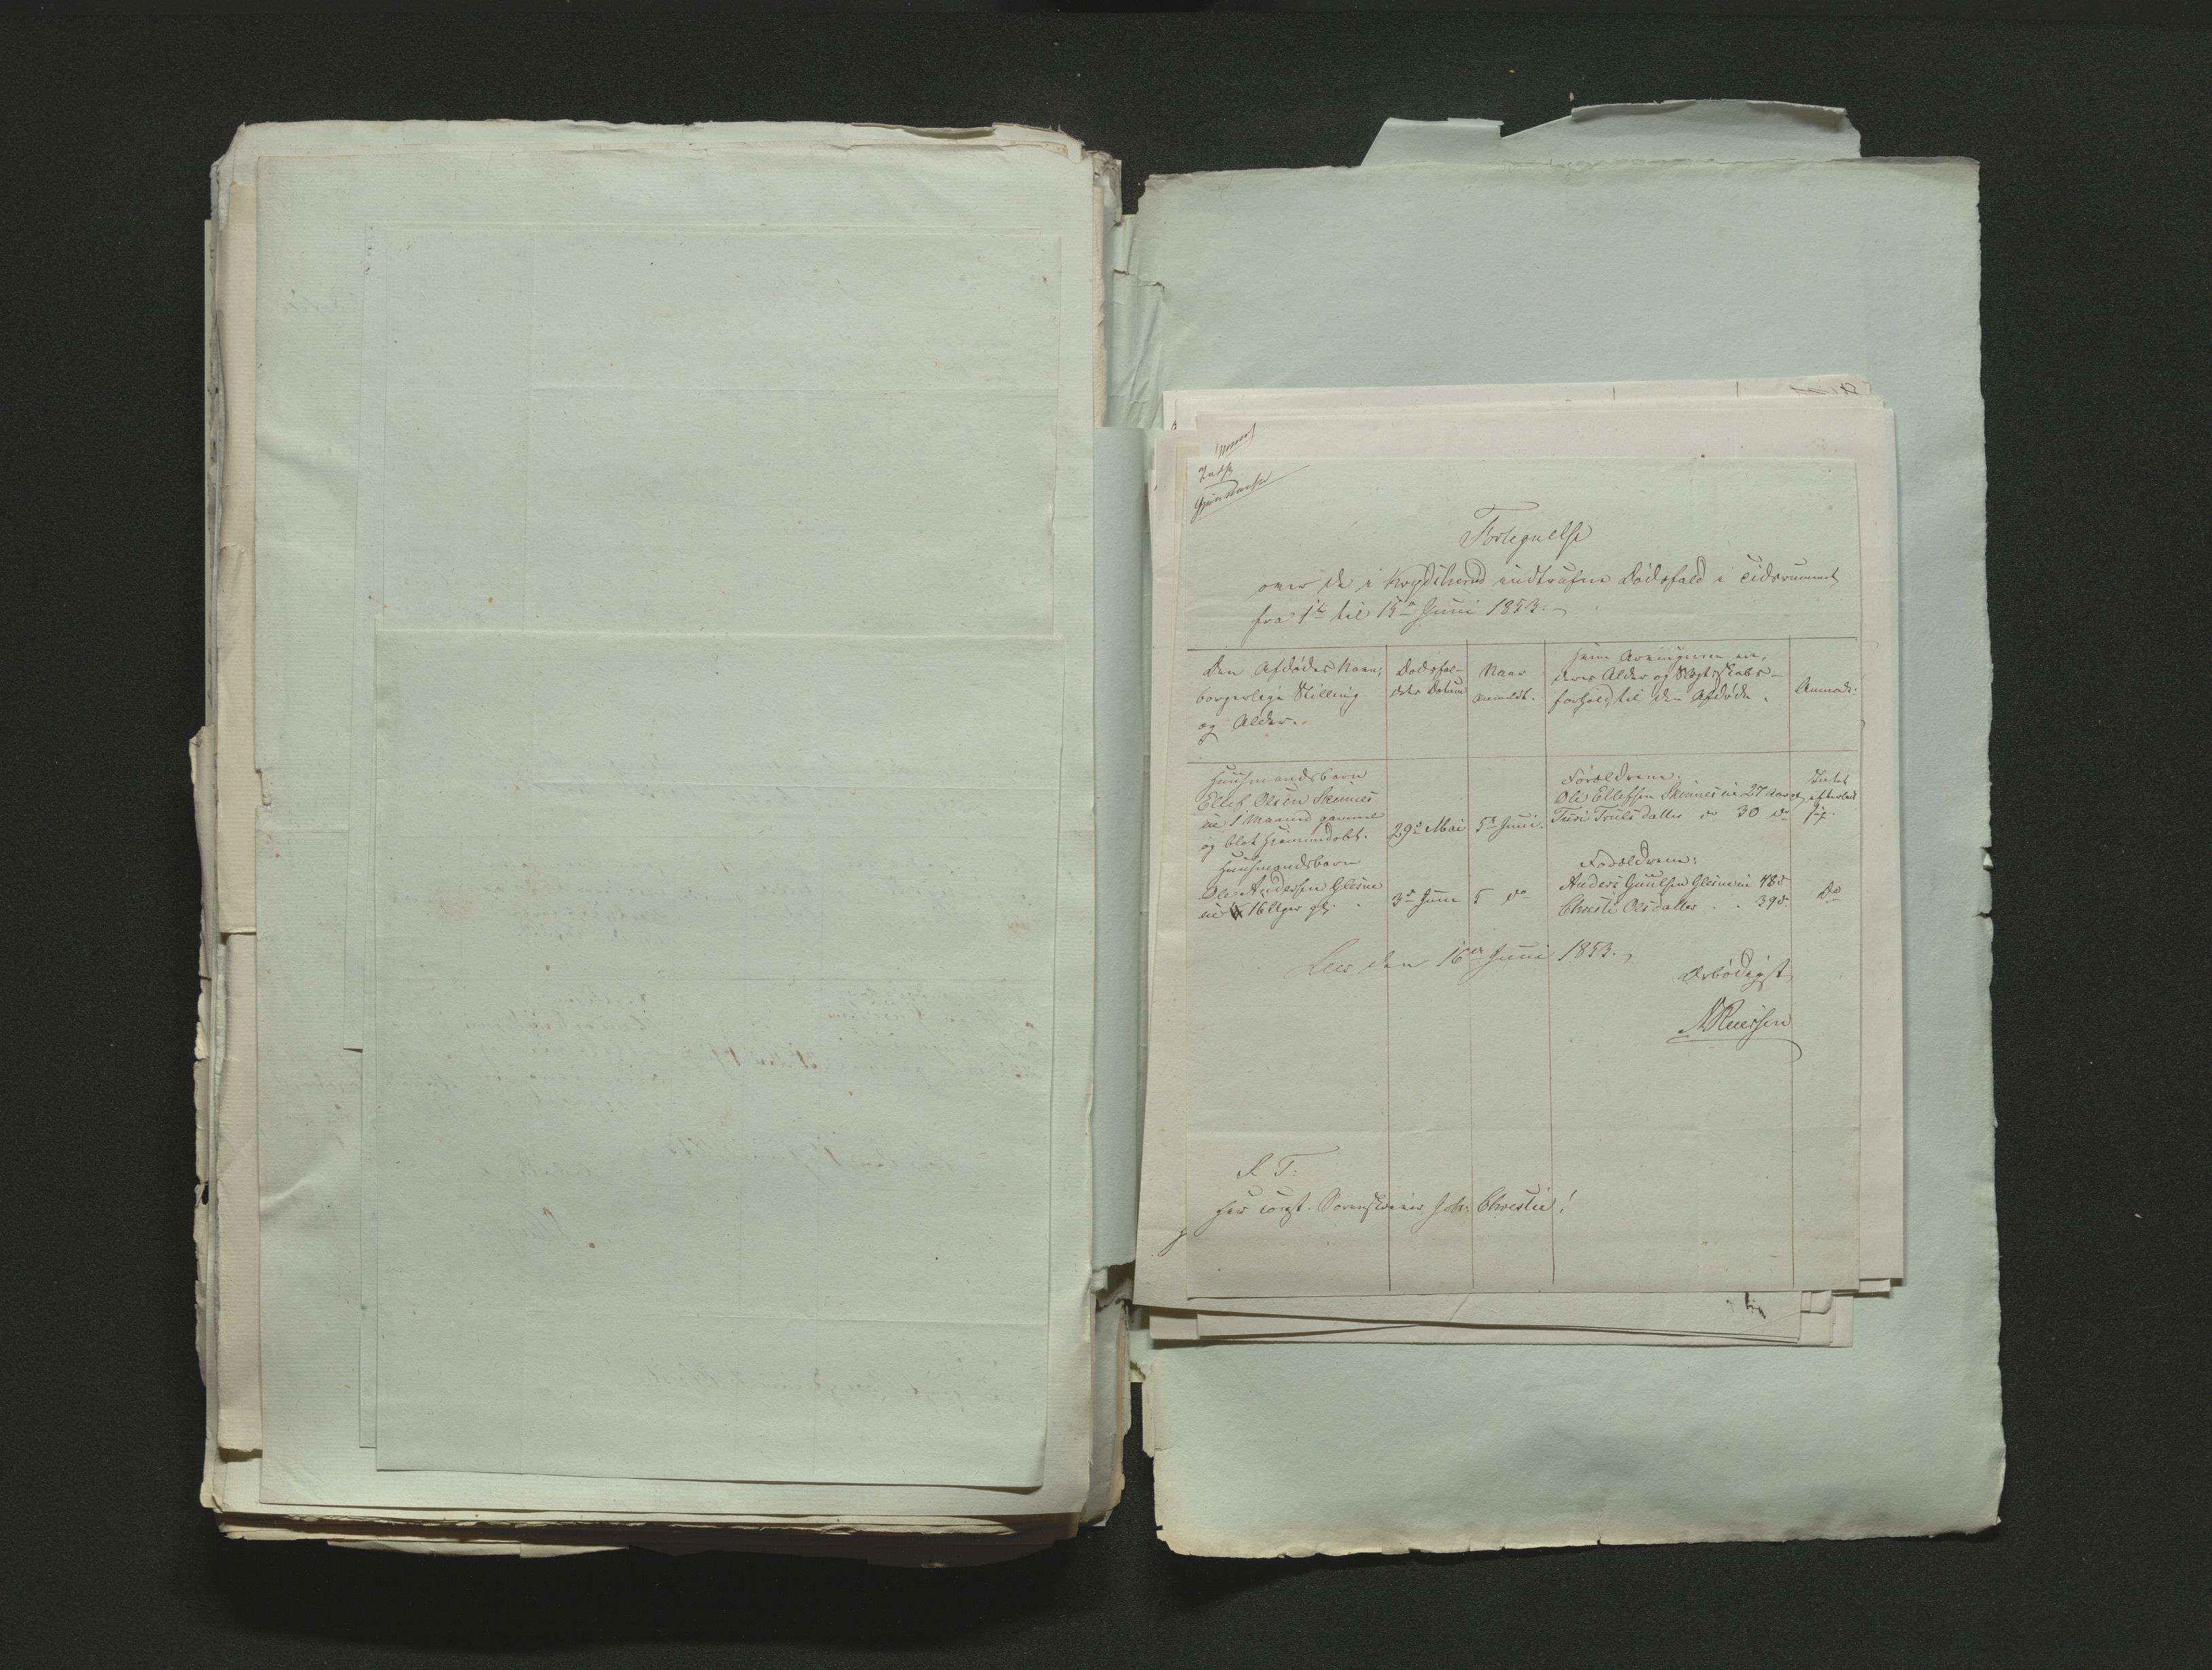 Fortegnelse
over de i Krydsherred indtrufne Dødsfald i Tidsrummet
fra 1te til 15de Juni 1853.
Den Afdødes Navn,
borgerlige Stilling
og Alder.
Dødsfal-
dets Datum
Naar
anmeldt.
Hvem Arvingerne ere,
deres Alder og Slægtskabs-
forhold til den Afdøde.
Anmærk:
Huusmandsbarn
Ellef Olsen Skinnes
1 Maaned gammel
og blot hjemmedøbt.
29de Mai
5te Juni.
Forældrene:
Ole Ellefsen Skinnes 27 Aar og
Turi Truls datter 30 do
Intet
efterladt
sig.
Huusmandsbarn
Ole Andersen Glesne
16 Uger gl.
3de Juni
5 do
Forældrene:
Anders Guulsen Glesne 48
Christi Olsdatter 39
Do
Lees den 16de Juni 1853.
Ærbødigst
S. T.
Herr const. Sorenskriver Joh: Christie!